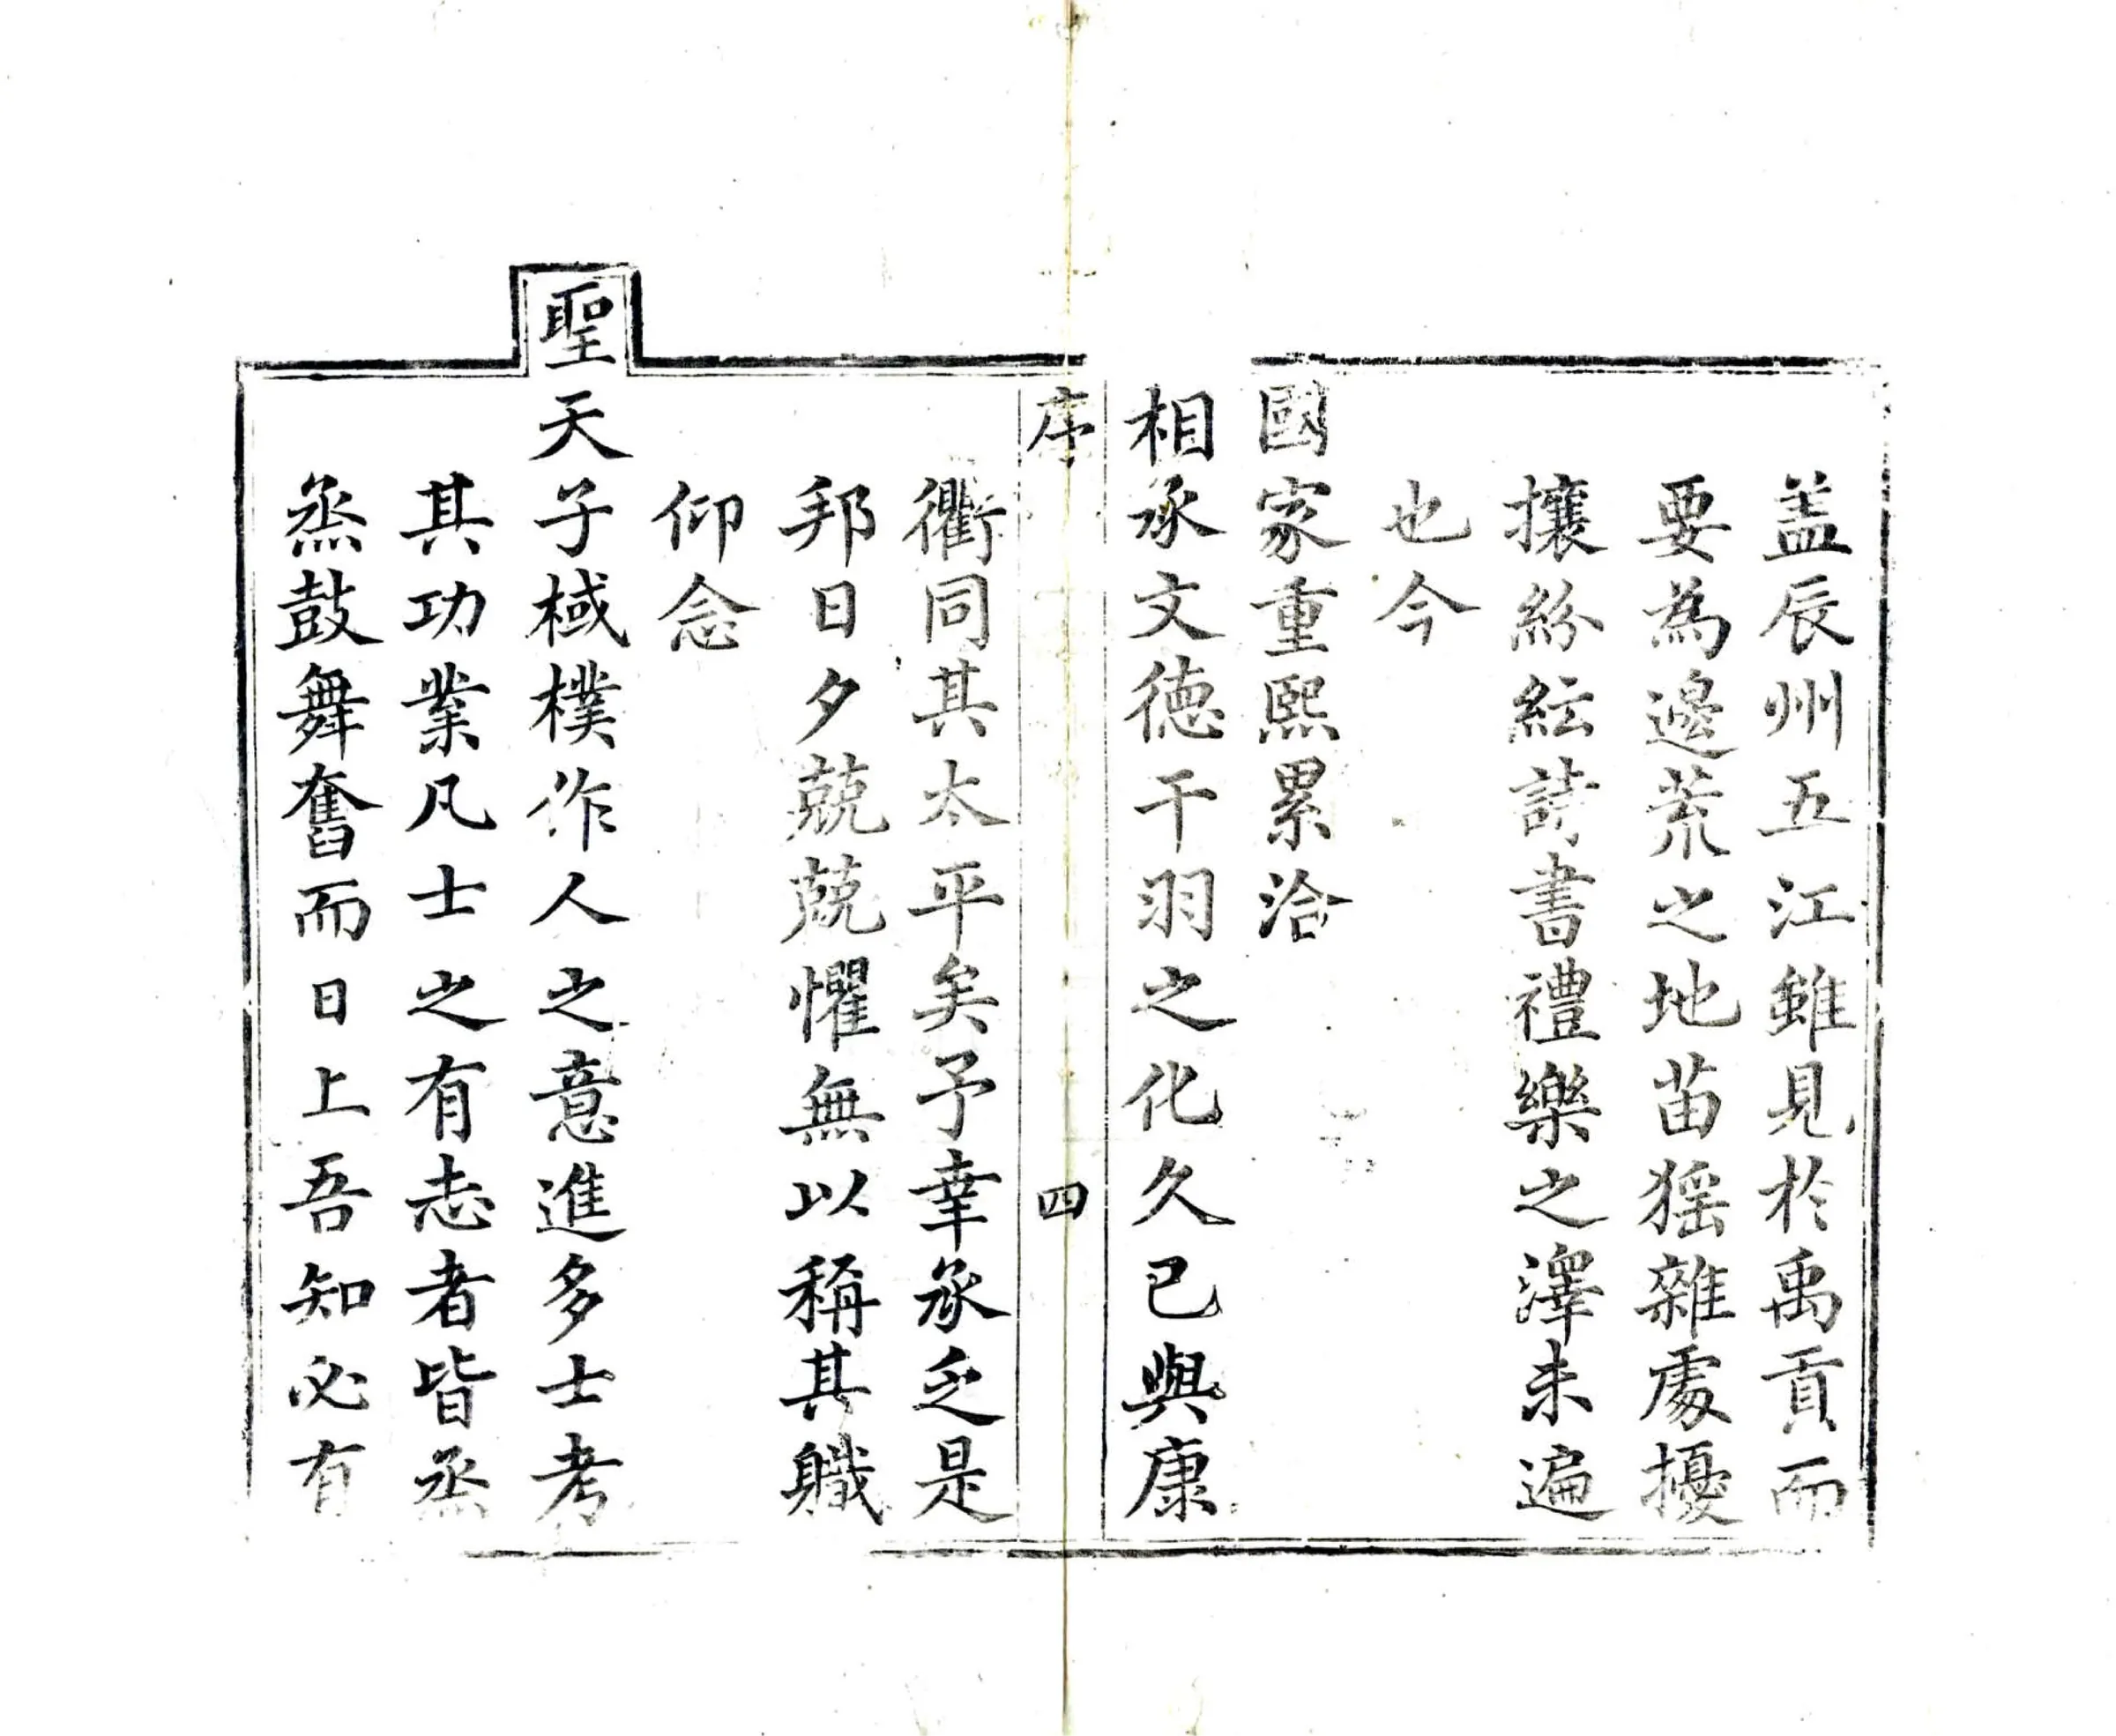 盖辰州五江雖見於禹貢而
要為邊荒之地苗猺雜處擾
攘紛紜詩書禮樂之澤未遍
也今
國家重熙累洽
相承文德干羽之化久已與康
序 四
衢同其太平矣予幸承乏是
邦日夕兢兢懼無以稱其職
仰念
聖天子棫樸作人之意進多士考
其功業凡士之有志者皆烝
烝鼓舞奮而日上吾知必有